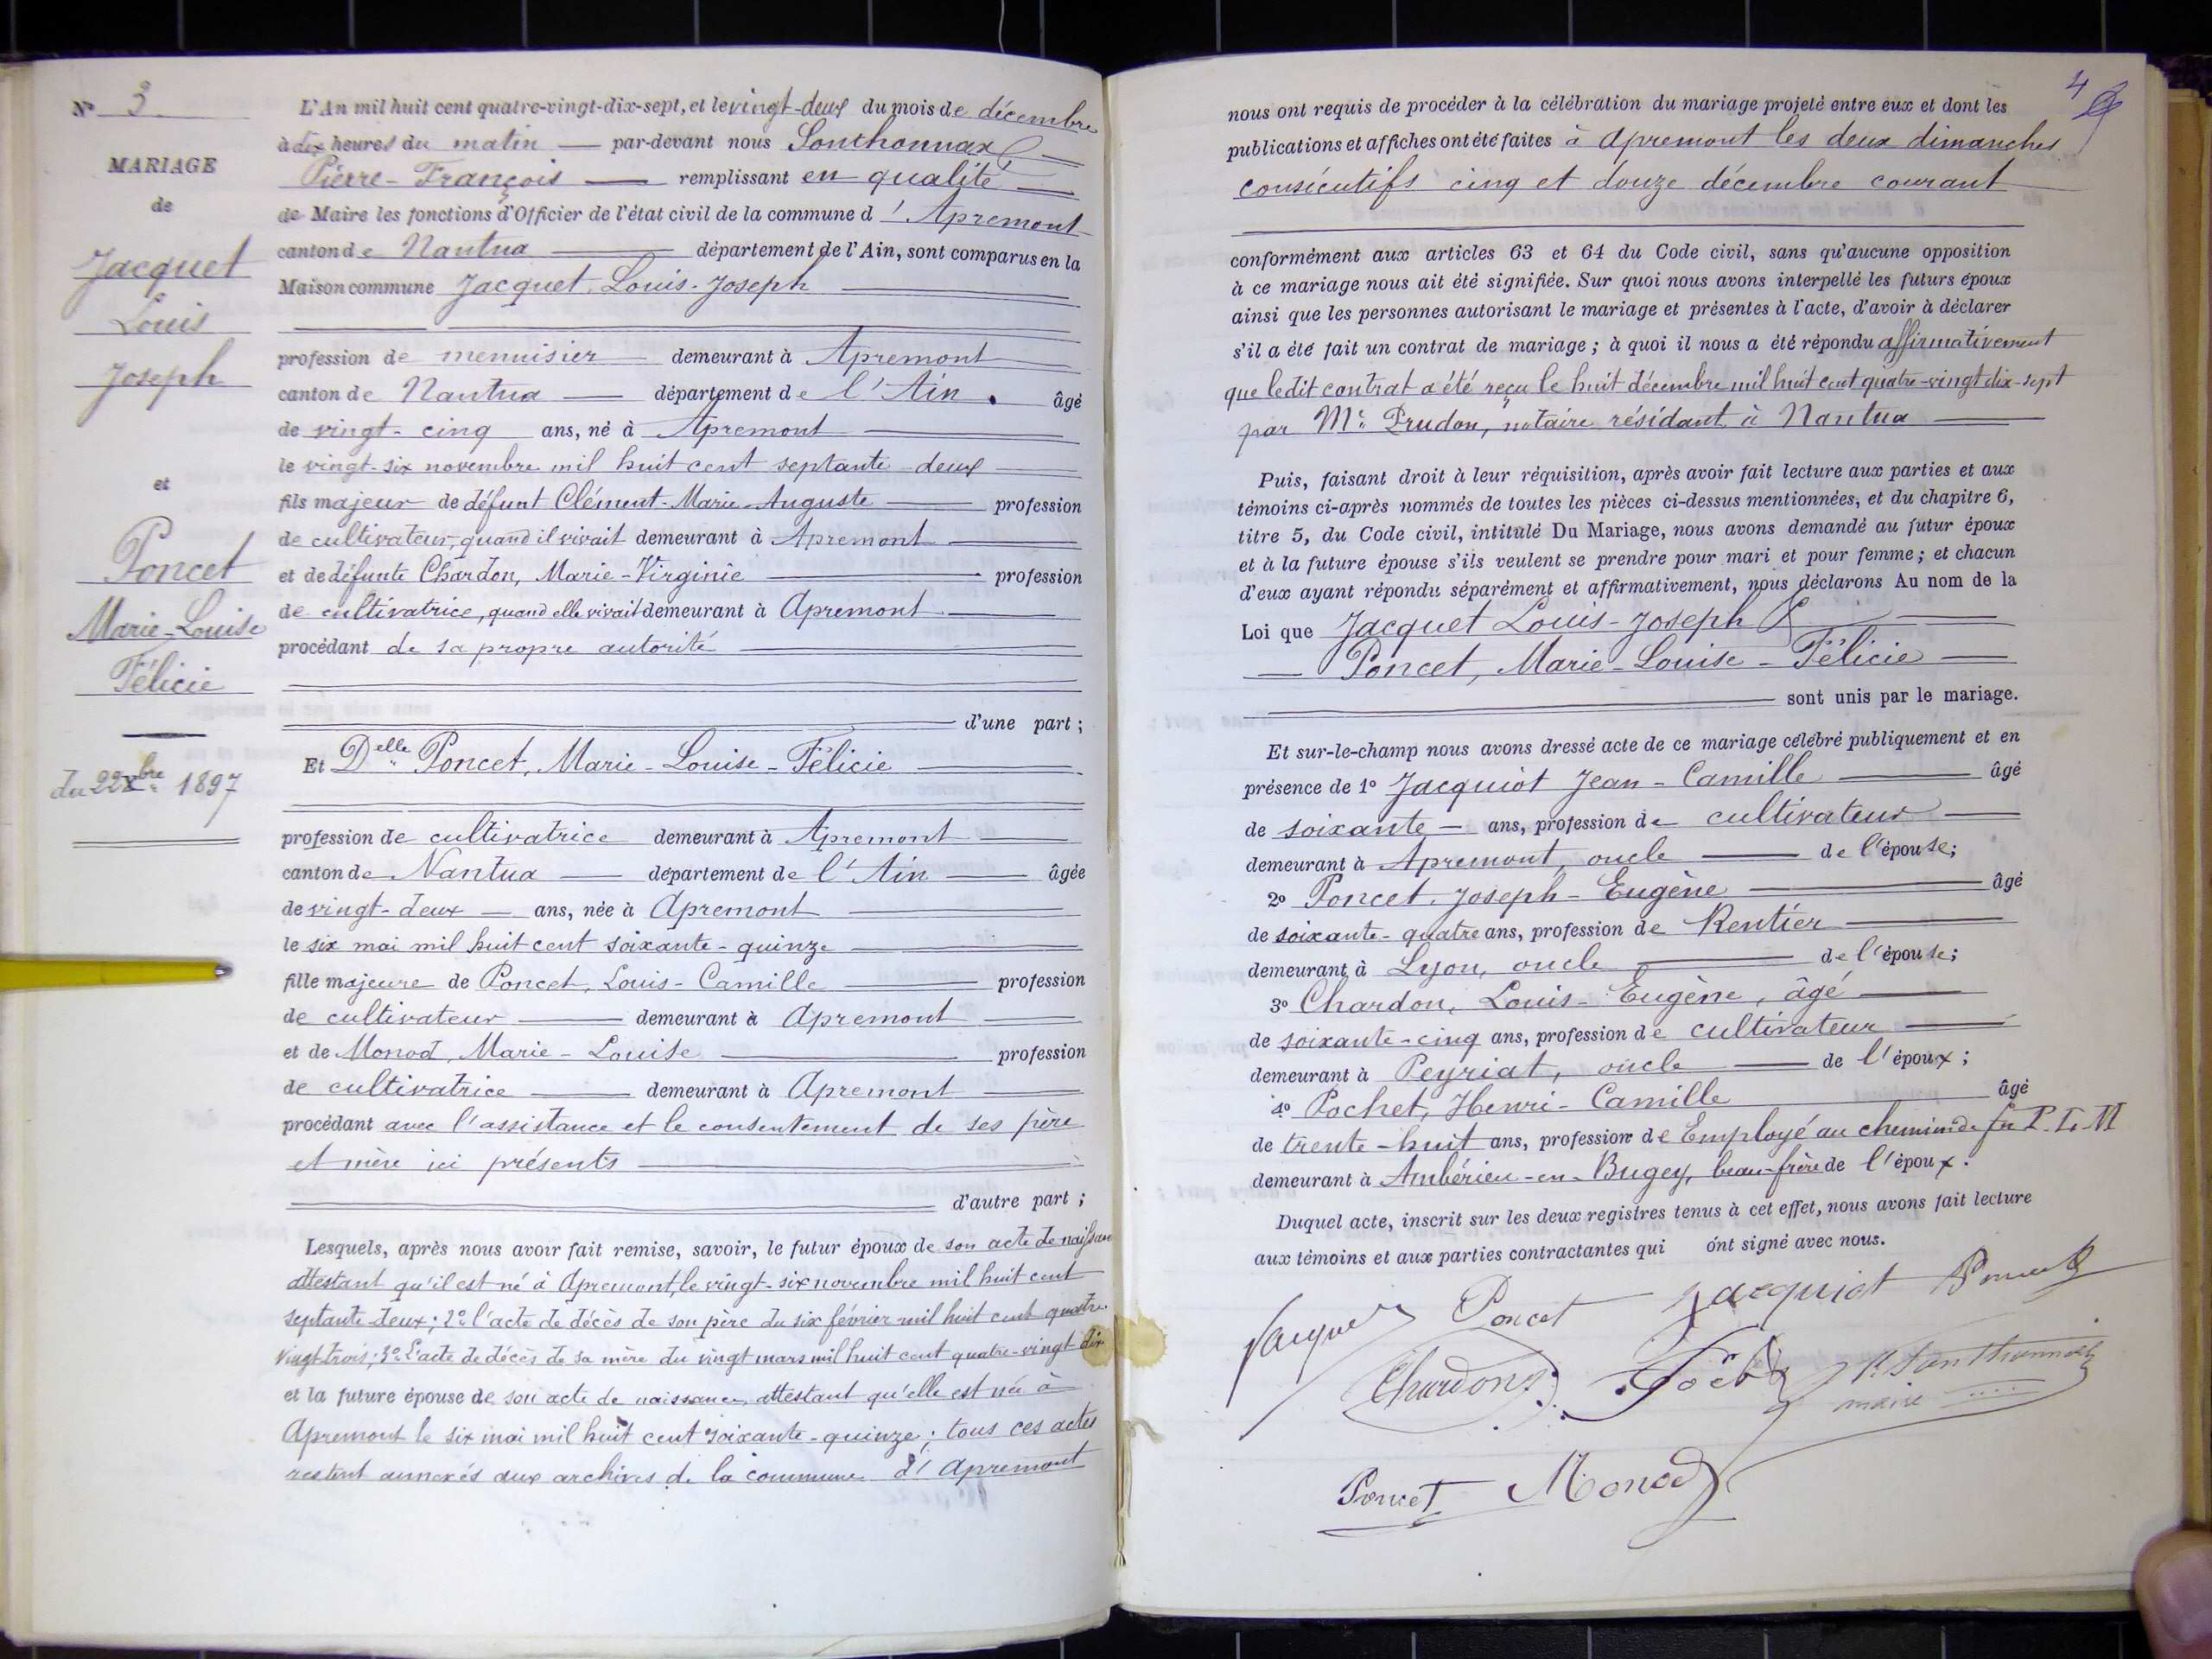 Nº 3
MARIAGE
de
Jacquet
Louis
Joseph
et
Poncet
Marie-Louise
Félicie
du 22 Xbre 1897
L'An mil huit cent quatre-vingt-dix-sept, et le vingt-deux du mois de décembre
à dix heures du matin par-devant nous Sonthonnax
Pierre-François remplissant en qualité
de Maire les fonctions d'Officier de l'état civil de la commune d'Apremont
canton de Nantua département de l'Ain, sont comparus en la
Maison commune Jacquet, Louis-Joseph
profession de menuisier demeurant à Apremont
canton de Nantua département de l'Ain. âgé
de vingt-cinq ans, né à Apremont
le vingt-six novembre mil huit cent septante-deux
fils majeur de défunt Clément-Marie-Auguste profession
de cultivateur, quand il vivait demeurant à Apremont
et de défunte Chardon, Marie-Virginie profession
de cultivatrice, quand elle vivait demeurant à Apremont
procédant de sa propre autorité
d'une part ;
Et Delle Poncet, Marie-Louise-Félicie
profession de cultivatrice demeurant à Apremont
canton de Nantua département de l'Ain âgée
de vingt-deux ans, née à Apremont
le six mai mil huit cent soixante-quinze
fille majeure de Poncet, Louis-Camille profession
de cultivateur demeurant à Apremont
et de Monod, Marie-Louise profession
de cultivatrice demeurant à Apremont
procédant avec l'assistance et le consentement de ses père
et mère ici présents
d'autre part ;
Lesquels, après nous avoir fait remise, savoir, le futur époux de son acte de naissance
attestant qu'il est né à Apremont, le vingt-six novembre mil huit cent
septante-deux ; 2º l'acte de décès de son père du six février mil huit cent quatre-
vingt-trois ; 3º l'acte de décès de sa mère du vingt mars mil huit cent quatre-vingt-dix
et la future épouse de son acte de naissance, attestant qu'elle est née à
Apremont le six mai mil huit cent soixante-quinze ; tous ces actes
restent annexés aux archives de la commune d'Apremont
4
nous ont requis de procéder à la célébration du mariage projeté entre eux et dont les
publications et affiches ont été faites à Apremont les deux dimanches
consécutifs cinq et douze décembre courant
conformément aux articles 63 et 64 du Code civil, sans qu'aucune opposition
à ce mariage nous ait été signifiée. Sur quoi nous avons interpellé les futurs époux
ainsi que les personnes autorisant le mariage et présentes à l'acte, d'avoir à déclarer
s'il a été fait un contrat de mariage ; à quoi il nous a été répondu affirmativement
que ledit contrat a été reçu le huit décembre mil huit cent quatre-vingt dix-sept
par Me Prudon, notaire résidant à Nantua
Puis, faisant droit à leur réquisition, après avoir fait lecture aux parties et aux
témoins ci-après nommés de toutes les pièces ci-dessus mentionnées, et du chapitre 6,
titre 5, du Code civil, intitulé Du Mariage, nous avons demandé au futur époux
et à la future épouse s'ils veulent se prendre pour mari et pour femme ; et chacun
d'eux ayant répondu séparément et affirmativement, nous déclarons Au nom de la
Loi que Jacquet Louis-Joseph &
Poncet, Marie-Louise-Félicie
sont unis par le mariage.
Et sur-le-champ nous avons dressé acte de ce mariage célébré publiquement et en
présence de 1º Jacquiot Jean-Camille âgé
de soixante ans, profession de cultivateur
demeurant à Apremont, oncle de l'épouse ;
2º Poncet, Joseph-Eugène âgé
de soixante-quatre ans, profession de Rentier
demeurant à Lyon, oncle de l'épouse ;
3º Chardon, Louis-Eugène, âgé
de soixante-cinq ans, profession de cultivateur
demeurant à Peyriat, oncle de l'époux ;
4º Pochet, Henri-Camille âgé
de trente-huit ans, profession de Employé au chemin de fer P. L. M
demeurant à Ambérieu-en-Bugey, beau-frère de l'époux.
Duquel acte, inscrit sur les deux registres tenus à cet effet, nous avons fait lecture
aux témoins et aux parties contractantes qui ont signé avec nous.
Jacquet Poncet Jacquiot Poncet
Chardon Pochet P. Sonthonnax
maire
Poncet Monod